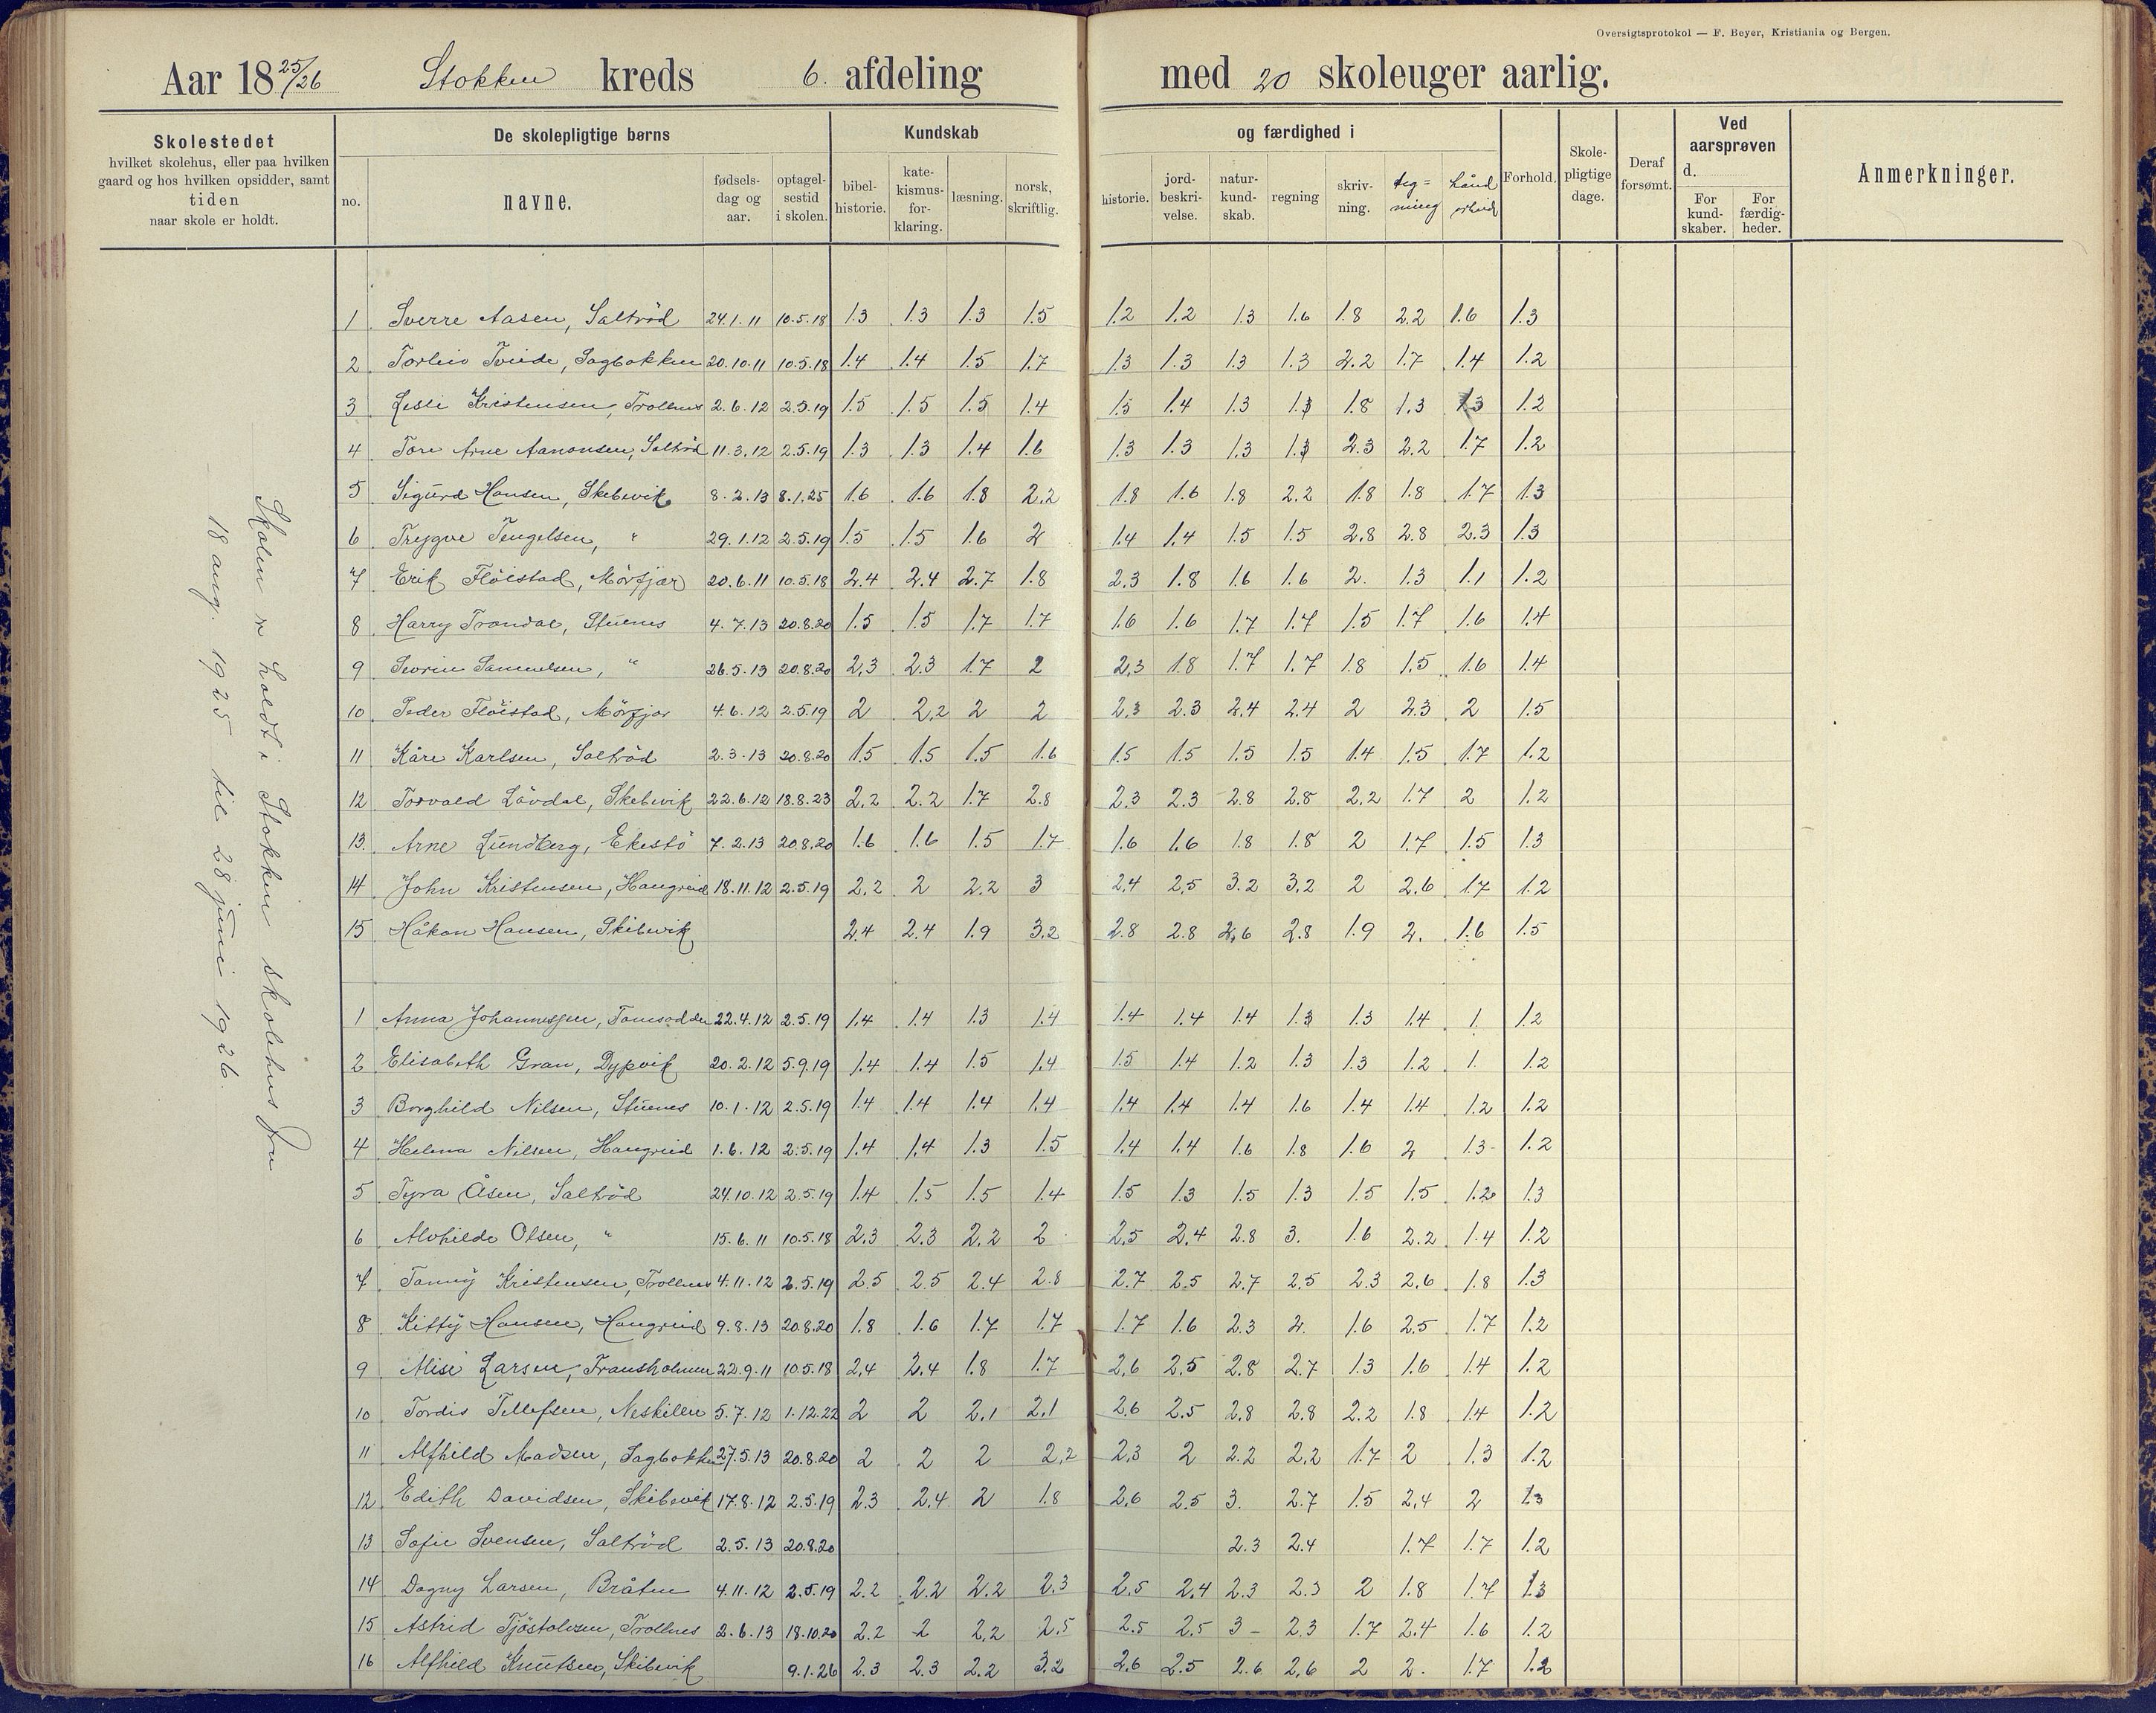 Oversigtsprotokol — F. Beyer, Kristiania og Bergen.
Aar 18 25/26 Stokken kreds 6. afdeling med 20 skoleuger aarlig.
Skolestedet
hvilket skolehus, eller paa hvilken
gaard og hos hvilken opsidder, samt
tiden
naar skole er holdt.
De skolepligtige børns
no.
navne.
fødsels-
dag og
aar.
optagel-
sestid
i skolen.
Kundskab
bibel-
historie.
kate-
kismus-
for-
klaring.
læsning.
norsk,
skriftlig.
og færdighed i
historie.
jord-
beskri-
velse.
natur-
kund-
skab.
regning
skriv-
ning.
teg=
ning
hånd
arbeid
Forhold.
Skole-
pligtige
dage.
Deraf
forsømt.
Ved
aarsprøven
d.
For
kund-
skaber.
For
færdig-
heder.
Anmerkninger.
Skolen er holdt i Stokken skolehus fra
18 aug. 1925 til 28 juni 1926.
1 Sverre Aasen, Saltröd 24.1.11 10.5.18 1.3 1.3 1.3 1.5 1.2 1.2 1.3 1.6 1.8 2.2 1.6 1.3
2 Torleiv Tveide, Sagbakken 20.10.11 10.5.18 1.4 1.4 1.5 1.7 1.3 1.3 1.3 1.3 2.2 1.7 1.4 1.2
3 Lesli Kristensen, Trollnes 2.6.12 2.5.19 1.5 1.5 1.5 1.4 1.5 1.4 1.3 1.3 1.8 1.3 1.3 1.2
4 Tore Arne Aanonsen, Saltröd 11.3.12 2.5.19 1.3 1.3 1.4 1.6 1.3 1.3 1.3 1.3 2.3 2.2 1.7 1.2
5 Sigurd Hansen, Skibevik 8.2.13 8.1.25 1.6 1.6 1.8 2.2 1.8 1.6 1.8 2.2 1.8 1.8 1.7 1.3
6 Trygve Tengelsen, " 29.1.12 2.5.19 1.5 1.5 1.6 2 1.4 1.4 1.5 1.5 2.8 2.8 2.3 1.3
7 Erik Flöistad, Mörfjær 20.6.11 10.5.18 2.4 2.4 2.7 1.8 2.3 1.8 1.6 1.6 2. 1.3 1.1 1.2
8 Harry Trondal, Stuenes 4.7.13 20.8.20 1.5 1.5 1.7 1.7 1.6 1.6 1.7 1.7 1.5 1.7 1.6 1.4
9 Severin Samuelsen, " 26.5.13 20.8.20 2.3 2.3 1.7 2 2.3 1.8 1.7 1.7 1.8 1.5 1.6 1.4
10 Peder Flöistad, Mörfjær 4.6.12 2.5.19 2 2.2 2 2 2.3 2.3 2.4 2.4 2 2.3 2 1.5
11 Kåre Karlsen, Saltröd 2.3.13 20.8.20 1.5 1.5 1.5 1.6 1.5 1.5 1.5 1.5 1.4 1.5 1.7 1.2
12 Torvald Lövdal, Skibevik 22.6.12 18.8.23 2.2 2.2 1.7 2.8 2.3 2.3 2.8 2.8 2.2 1.7 2 1.2
13. Arne Lundberg, Ekestö 7.2.13 20.8.20 1.6 1.6 1.5 1.7 1.6 1.6 1.8 1.8 2 1.7 1.5 1.3
14 John Kristensen, Haugreid 18.11.12 2.5.19 2.2 2 2.2 3 2.4 2.5 3.2 3.2 2 2.6 1.7 1.2
15 Håkon Hansen, Skibevik 2.4 2.4 1.9 3.2 2.8 2.8 2.6 2.8 1.9 2. 1.6 1.5
1 Anna Johannessen, Tomsodden 22.4.12 2.5.19 1.4 1.4 1.3 1.4 1.4 1.4 1.4 1.3 1.3 1.4 1. 1.2
2 Elisabeth Gran, Dypvik 20.2.12 5.9.19 1.4 1.4 1.5 1.4 1.5 1.4 1.2 1.3 1.3 1.2 1. 1.2
3 Borghild Nilsen, Stuenes 10.1.12 2.5.19 1.4 1.4 1.4 1.4 1.4 1.4 1.4 1.6 1.4 1.4 1.2 1.2
4 Helma Nilsen, Haugreid 1.6.12 2.5.19 1.4 1.4 1.3 1.5 1.4 1.4 1.6 1.8 1.6 2 1.3 1.2
5 Tyra Åsen, Saltröd 24.10.12 2.5.19 1.4 1.5 1.5 1.4 1.5 1.3 1.5 1.3 1.5 1.5 1.2 1.3
6 Alvhilde Olsen, " 15.6.11 10.5.18 2.3 2.3 2.2 2 2.5 2.4 2.8 3. 1.6 2.2 1.4 1.2
7 Tanny Kristensen, Trollnes 4.11.12 2.5.19 2.5 2.5 2.4 2.8 2.7 2.5 2.7 2.5 2.3 2.6 1.8 1.3
8 Kitty Hansen, Haugreid 9.8.13 20.8.20 1.8 1.6 1.7 1.7 1.7 1.6 2.3 2. 1.6 2.5 1.7 1.2
9 Alise Larsen, Fransholmen 22.9.11 10.5.18 2.4 2.4 1.8 1.7 2.6 2.5 2.8 2.7 1.3 1.6 1.4 1.2
10 Tordis Tellefsen, Neskilen 5.7.12 1.12.22 2 2 2.1 2.1 2.6 2.5 2.8 2.8 2.2 1.8 1.4 1.2
11 Alfhild Madsen, Sagbakken 27.5.13 20.8.20 2 2 2 2.2 2.3 2 2.2 2.2 1.7 2 1.3 1.2
12 Edith Davidsen, Skibevik 17.8.12 2.5.19 2.3 2.4 2 1.8 2.6 2.5 3. 2.7 1.5 2.4 2 1.3
13 Sofie Svensen, Saltröd 2.5.13 20.8.20 2.3 2.4 1.7 1.7 1.2
14 Dagny Larsen, Bråten 4.11.12 2.5.19 2.2 2.2 2.2 2.3 2.5 2.4 2.3 2.3 2 1.8 1.7 1.3
15 Astrid Tjöstolvsen, Trollnes 2.6.13 18.10.20 2.2 2 2.2 2.5 2.5 2.5 3 - 2.3 1.7 2.4 1.6 1.2
16 Alfhild Knutsen, Skibevik 9.1.26 2.3 2.3 2.2 3.2 2.6 2.5 2.6 2.6 2 2. 1.7 1.2